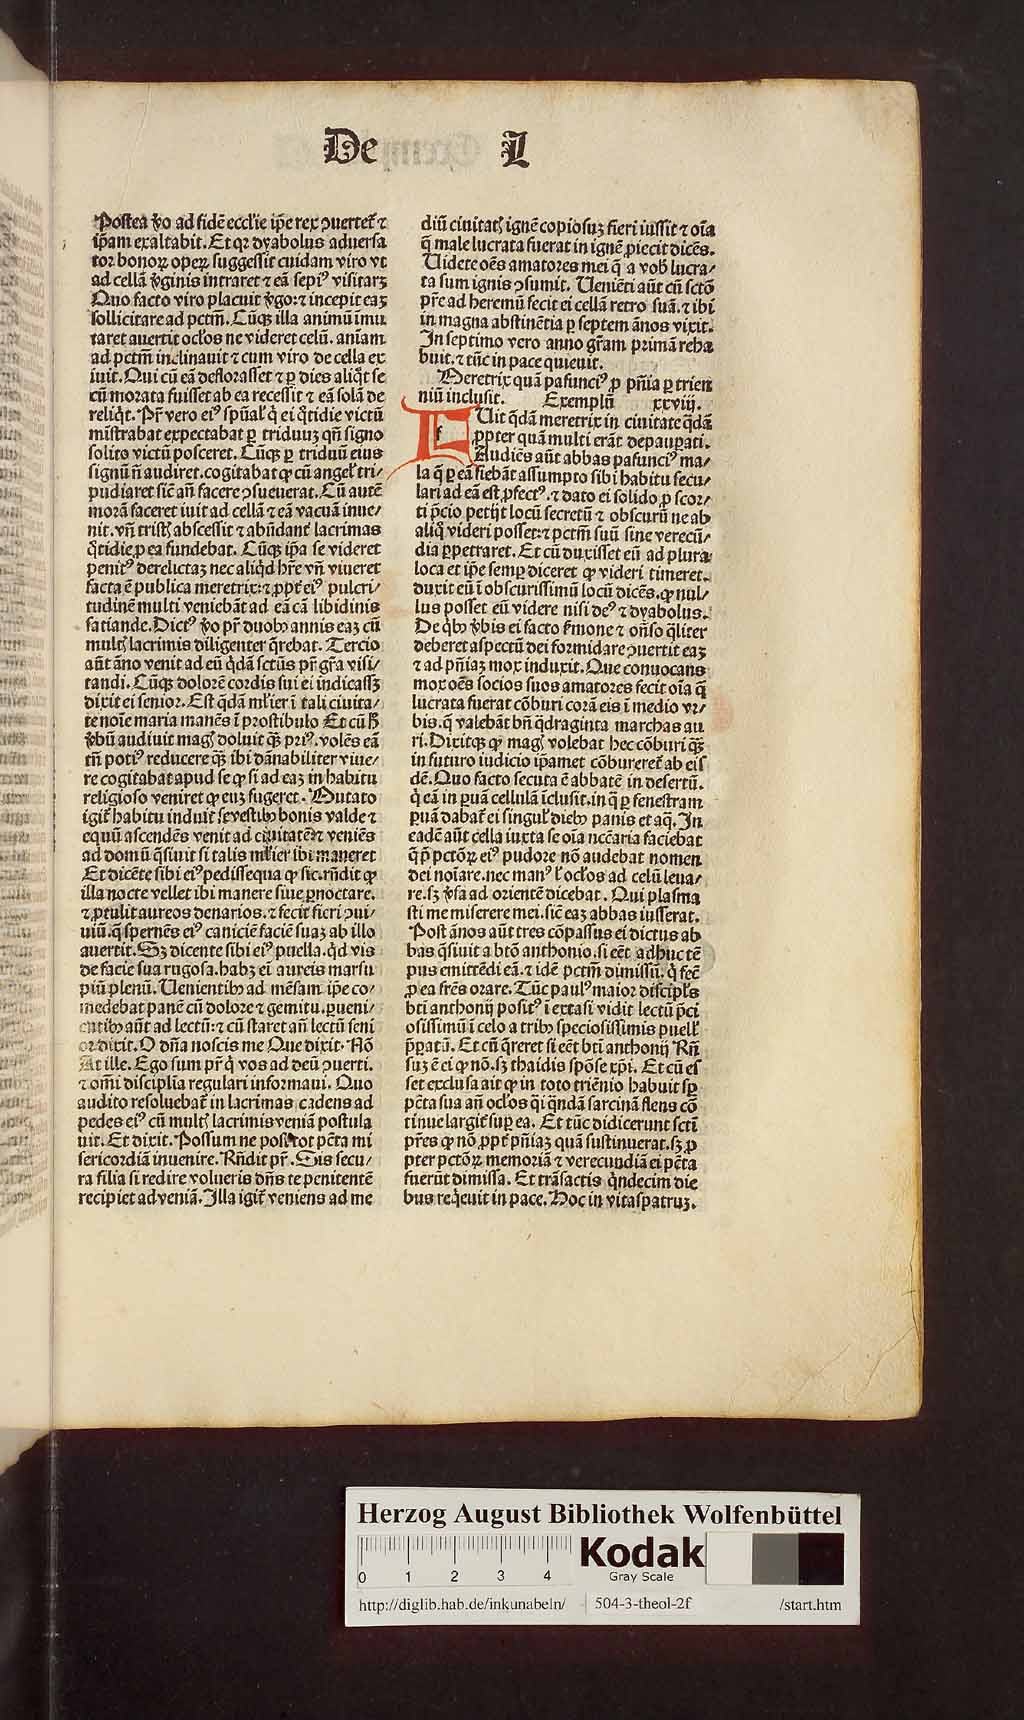 De L
Postea ṽo ad fidē eccl'ie ip̄e rex ꝯuertet̃ ⁊
ip̄am exaltabit. Et qꝛ dyabolus aduersa
tor bonoꝝ opeꝝ suggessit cuidam viro vt
ad cellā ṽginis intraret ⁊ eā sepiꝰ visitarꝫ
Quo facto viro placuit ṽgo: ⁊ incepit eaꝫ
sollicitare ad pctm̄. Cūqꝫ illa animū īmu
taret auertit oc̄los ne videret celū. aniam
ad pctm̄ inclinauit ⁊ cum viro de cella ex
iuit. Qui cū eā deflorasset ⁊ ꝑ dies aliq̄t se
cū morata fuisset ab ea recessit ⁊ eā solā de
reliq̄t. Pr̄ vero eiꝰ spūal' q̄ ei q̄tidie victū
mīstrabat expectabat ꝑ triduuꝫ qn̄ signo
solito victū posceret. Cūqꝫ ꝑ triduū eius
signū n̄ audiret. cogitabat ꝙ cū angel' tri⸗
pudiaret sic̄ an̄ facere ꝯsueuerat. Cū autē
morā faceret iuit ad cellā ⁊ eā vacuā inue⸗
nit. vn̄ tristꝭ abscessit ⁊ abūdant̃ lacrimas
q̄tidie ꝓ ea fundebat. Cūqꝫ ip̄a se videret
penitꝰ derelictaꝫ nec aliq̄d hr̄e vn̄ viueret
facta ē publica meretrix: ⁊ ꝓpt̃ eiꝰ pulcri⸗
tudinē multi veniebāt ad eā cā libidinis
satiande. Dictꝰ ṽo pr̄ duobꝰ annis eaꝫ cū
multꝭ lacrimis diligenter q̄rebat. Tercio
aūt āno venit ad eū q̄dā sctūs pr̄ gr̄a visi⸗
tandi. Cūqꝫ dolorē cordis sui ei indicassꝫ
dixit ei senior. Est q̄dā ml'ier ī tali ciuita⸗
te noīe maria manēs ī prostibulo Et cū ħ
ṽbū audiuit magꝭ doluit qꝫ̄ priꝰ. volēs eā
tn̄ potiꝰ reducere qꝫ̄ ibi dānabiliter viue⸗
re cogitabat apud se ꝙ si ad eaꝫ in habitu
religioso veniret ꝙ euꝫ fugeret. Mutato
igit̃ habitu induit se vestibꝰ bonis valde ⁊
equū ascendēs venit ad ciuitatē: ⁊ veniēs
ad domū q̄siuit si talis ml'ier ibi maneret
Et dicēte sibi eiꝰ pedissequa ꝙ sic. rn̄dit ꝙ
illa nocte vellet ibi manere siue ꝑnoctare.
⁊ ꝓtulit aureos denarios. ⁊ fecit fieri ꝯui⸗
uiū. q̄ spernēs eiꝰ caniciē faciē suaꝫ ab illo
auertit. Sꝫ dicente sibi eiꝰ puella. q̄d vis
de facie sua rugosa. habꝫ eī aureis marsu
piū plenū. Uenientibꝰ ad mēsam ip̄e co⸗
medebat panē cū dolore ⁊ gemitu. ꝑueni⸗
entibꝰ aūt ad lectū: ⁊ cū staret an̄ lectū seni
or dixit. O dn̄a noscis me Que dixit. Nō
At ille. Ego sum pr̄ q̄ vos ad deū ꝯuerti.
⁊ om̄i disciplīa regulari informaui. Quo
audito resoluebat̃ in lacrimas cadens ad
pedes eiꝰ cū multꝭ lacrimis veniā postula
uit. Et dixit. Possum ne post tot pc̄ta mi
sericordiā inuenire. Rn̄dit pr̄. Sis secu⸗
ra filia si redire volueris dn̄s te penitentē
recipiet ad veniā. Illa igit̃ veniens ad me
diū ciuitatꝭ ignē copiosuꝫ fieri iussit ⁊ oīa
q̄ male lucrata fuerat in ignē ꝓiecit dicēs.
Uidete oēs amatores mei q̄ a vob' lucra⸗
ta sum ignis ꝯsumit. Ueniēti aūt cū sctō
pr̄e ad heremū fecit ei cellā retro suā. ⁊ ibi
in magna abstinētia ꝑ septem ānos vixit.
In septimo vero anno gr̄am primā reha
buit. ⁊ tūc in pace quieuit.
Meretrix quā pafunciꝰ ꝓ pn̄ia ꝑ trien
niū inclusit. Exemplū xxviij.
FUit q̄dā meretrix in ciuitate q̄dā
ꝓpter quā multi erāt depauꝑati.
Audiēs aūt abbas pafunciꝰ ma⸗
la q̄ ꝑ eā fiebāt assumpto sibi habitu secu⸗
lari ad eā est ꝓfectꝰ. ⁊ dato ei solido ꝓ scor⸗
ti p̄cio petijt locū secretū ⁊ obscurū ne ab
aliq̄ videri posset: ⁊ pctm̄ suū sine verecū⸗
dia ꝑpetraret. Et cū duxisset eū ad plura
loca et ip̄e semꝑ diceret ꝙ videri timeret.
duxit eū ī obscurissimū locū dicēs. ꝙ nul⸗
lus posset eū videre nisi deꝰ ⁊ dyabolus.
De q̄bꝰ ṽbis ei facto s̄mone ⁊ on̄so q̄liter
deberet aspectū dei formidare ꝯuertit eaꝫ
⁊ ad pn̄iaꝫ mox induxit. Que conuocans
mox oēs socios suos amatores fecit oīa q̄
lucrata fuerat cōburi corā eis ī medio vr⸗
bis. q̄ valebāt bn̄ q̄draginta marchas au
ri. Dixitqꝫ ꝙ magꝭ volebat hec cōburi qꝫ̄
in futuro iudicio ip̄amet cōbureret̃ ab eis
dē. Quo facto secuta ē abbatē in desertū.
q̄ eā in ꝑuā cellulā īclusit. in q̄ ꝑ fenestram
ꝑuā dabat̃ ei singul' diebꝰ panis et aq̄. In
eadē aūt cella iuxta se oīa nccāria faciebat
q̄ p̄ pctōꝝ eiꝰ pudore nō audebat nomen
dei noīare. nec manꝰ l' oc̄los ad celū leua⸗
re. sꝫ ṽsa ad orientē dicebat. Qui plasma
sti me miserere mei. sic̄ eaꝫ abbas iusserat.
Post ānos aūt tres cōpassus ei dictus ab
bas q̄siuit a btō anthonio. si eēt adhuc tē
pus emittēdi eā. ⁊ idē pctm̄ dimissū. q̄ fec̄
ꝓ ea frēs orare. Tūc paulꝰ maior discipl's
btī anthonij positꝰ ī extasi vidit lectū p̄ci
osissimū ī celo a tribꝰ speciosissimis puell'
p̄patū. Et cū q̄reret si eēt btī anthonij Rn̄
suꝫ ē ei ꝙ nō. sꝫ thaidis spōse xp̄i. Et cū es
set exclusa ait ꝙ in toto triēnio habuit sꝑ
pc̄ta sua an̄ oc̄los q̄i q̄ndā sarcinā flens cō
tinue largit̃ suꝑ ea. Et tūc didicerunt sctī
pr̄es ꝙ nō ꝓpt̃ pn̄iaꝫ quā sustinuerat. sꝫ ꝓ
pter pctōꝝ memoriā ⁊ verecundiā ei pc̄ta
fuerūt dimissa. Et trāsactis q̄ndecim die
bus req̄euit in pace. Hoc in vitaspatruꝫ.
Herzog August Bibliothek Wolfenbüttel
0 1 2 3 4
Kodak
Gray Scale
http://diglib.hab.de/inkunabeln/ 504-3-theol-2f /start.htm